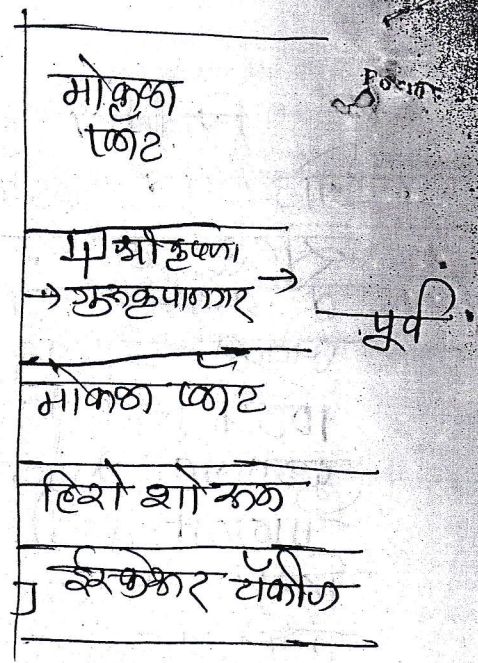 मोकळा
प्लॉट
श्री कृष्णा
→ गुरुकृपानगर →
पूर्व
मोकळा प्लॉट
हिरो शो रूम
टॉकीज